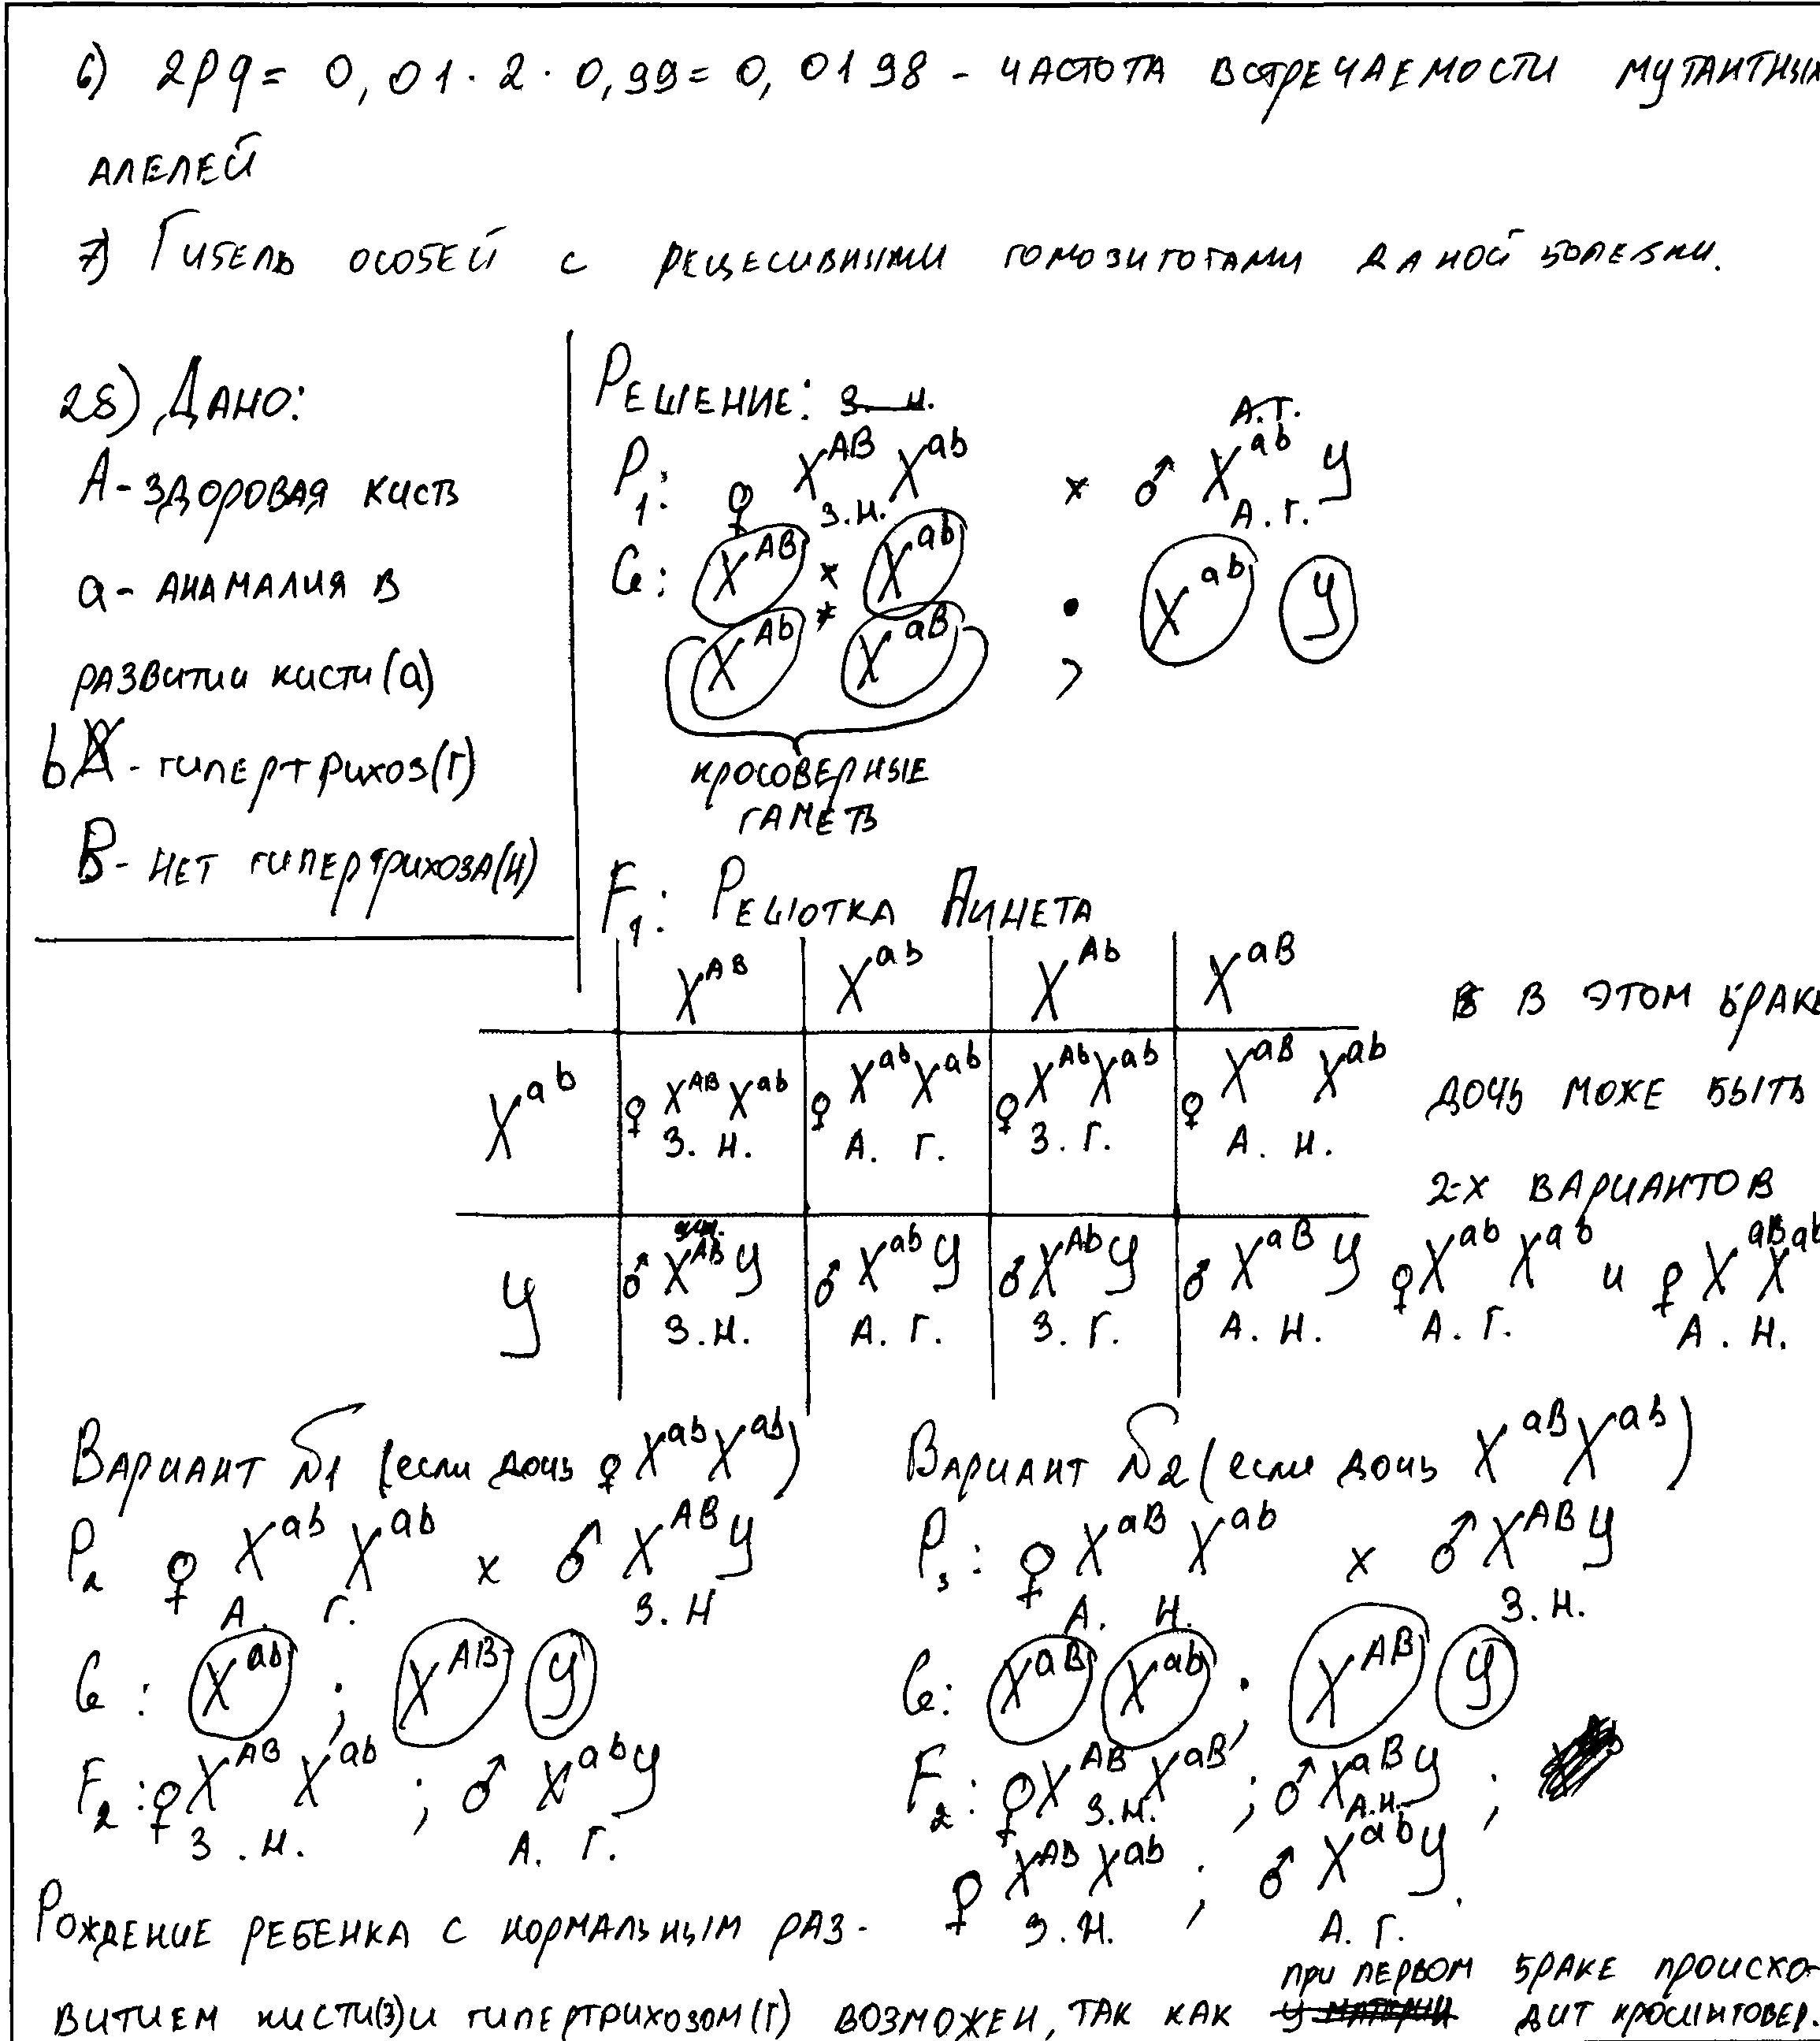 6) 2pq = 0,01 · 2 · 0,99 = 0,0198 - частота встречаемости мутантных
алелей
7) Гибель особей с рецесивными гомозиготами даной болезни.
28) Дано:
А - здоровая кисть
а - анамалия в
развитии кисти (а)
b - гипертрихоз (г)
B - нет гипертрихоза (н)
Решение:
P₁: ♀ X^AB X^ab × ♂ X^ab У
з.н. А.г.
G: X^AB X^ab ; X^ab У
X^Ab X^aB
кросоверные
гаметь
F₁: Решотка Пинета
X^AB X^ab X^Ab X^aB
X^ab ♀ X^AB X^ab ♀ X^ab X^ab ♀ X^Ab X^ab ♀ X^aB X^ab
З. Н. А. Г. З. Г. А. Н.
У ♂ X^AB У ♂ X^ab У ♂ X^Ab У ♂ X^aB У
З. Н. А. Г. З. Г. А. Н.
В этом браке
дочь може быть
2-х вариантов
♀ X^ab X^ab и ♀ X^aB X^ab
А. Г. А. Н.
Вариант №1 (если дочь ♀ X^ab X^ab)
P₂ ♀ X^ab X^ab × ♂ X^AB У
А. Г. З. Н
G: X^ab ; X^AB У
F₂: ♀ X^AB X^ab ; ♂ X^ab У
З. Н. А. Г.
Вариант №2 (если дочь X^aB X^ab)
P₃: ♀ X^aB X^ab × ♂ X^AB У
А. Н. З. Н.
G: X^aB X^ab ; X^AB У
F₂: ♀ X^AB X^aB ; ♂ X^aB У ;
З. Н. А. Н.
♀ X^AB X^ab ; ♂ X^ab У.
З. Н. А. Г.
Рождение ребенка с нормальным раз-
витием кисти (з) и гипертрихозом (г) возможен, так как при первом браке происхо-
дит кросинговер.